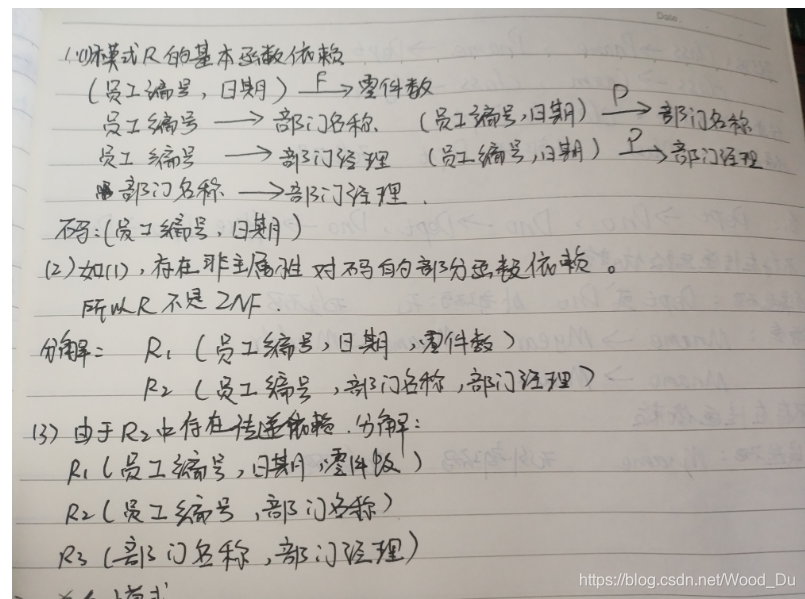 Date.
1.(1)模式R的基本函数依赖
(员工编号,日期) F→ 零件数
员工编号 → 部门名称. (员工编号,日期) P→ 部门名称
员工编号 → 部门经理 (员工编号,日期) P→ 部门经理
部门名称 → 部门经理.
码:(员工编号,日期)
(2)如(1),存在非主属性对码的部分函数依赖。
所以R不是2NF.
分解: R1(员工编号,日期,零件数)
R2(员工编号,部门名称,部门经理)
(3)由于R2中存在传递依赖.分解:
R1(员工编号,日期,零件数)
R2(员工编号,部门名称)
R3(部门名称,部门经理)
https://blog.csdn.net/Wood_Du